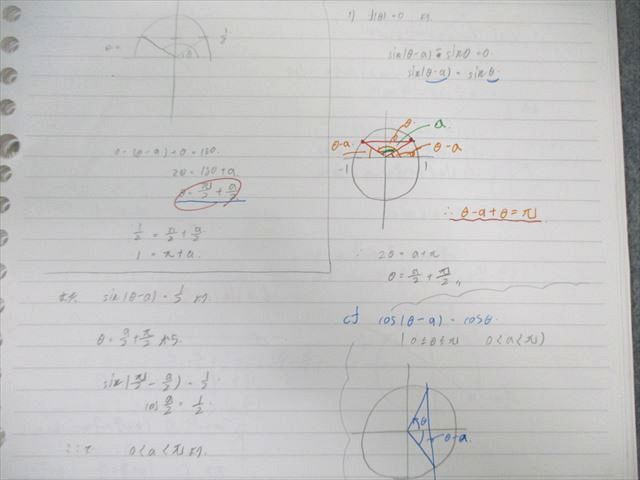 θ=
1/2
2θ = 180+a
θ = π/2 + a/2
1/2 = π/2 + a/2
1 = π + a
sin(θ-a) = 1/2 より
θ = a/2 + π/2 から
sin(π/2 - a/2) = 1/2
cos a/2 = 1/2
ここで 0<a<π より
1) f(θ)=0 より
sin(θ-a) = sinθ
θ
a
θ-a
θ-a
-1
1
∴ θ-a+θ=π
2θ = a+π
θ = a/2 + π/2 〃
cf cos(θ-a) = cosθ
(0≦θ≦π 0<a<π)
θ
θ-a